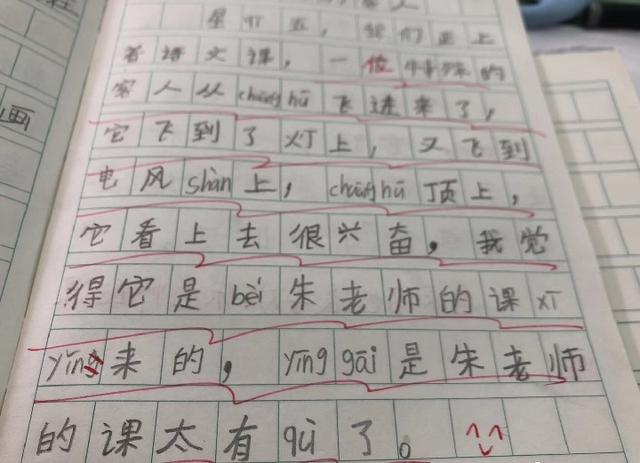 客人
星期五，我们正上
着语文课，一位特殊的
客人从chuāng hū飞进来了，
它飞到了灯上，又飞到
电风shàn上，chuāng hū顶上，
它看上去很兴奋，我觉
得它是bèi朱老师的课xī
yǐng来的，yīng gāi是朱老师
的课太有qù了。
画